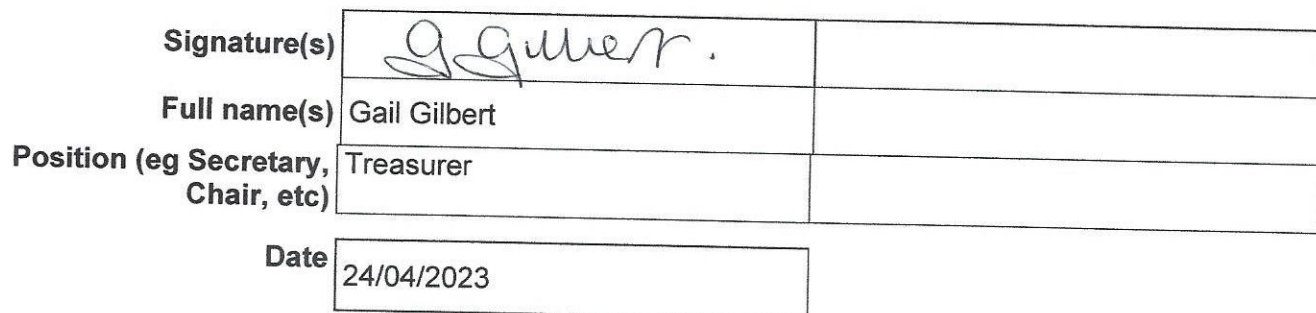 Signature(s) G Gilbert.
Full name(s) Gail Gilbert
Position (eg Secretary, Treasurer
Chair, etc)
Date 24/04/2023